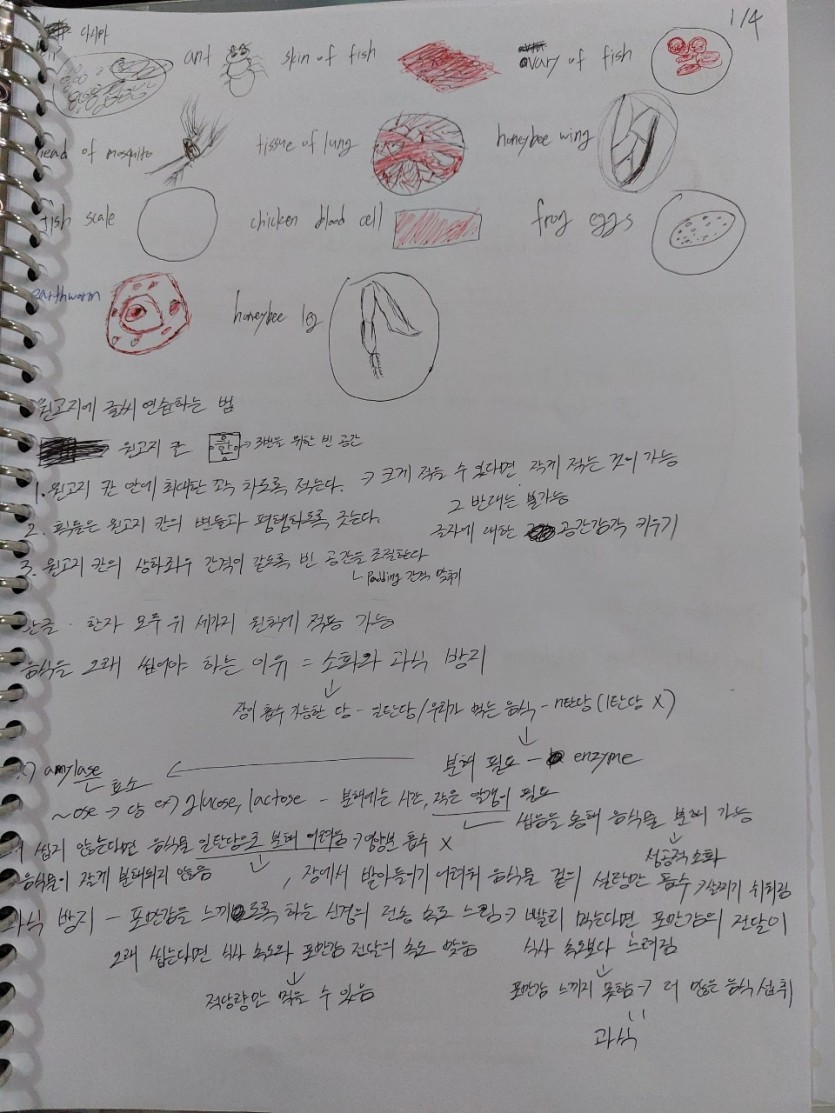 1/4
다시마 ant skin of fish ovary of fish
head of mosquito tissue of lung honeybee wing
fish scale chicken blood cell frog eggs
earthworm honeybee leg
원고지에 글씨 연습하는 법
원고지 칸 한 → 3번을 위한 빈 공간
1. 원고지 칸 안에 최대한 꽉 차도록 적는다. → 크게 적을 수 있다면 작게 적는 것이 가능
그 반대는 불가능
2. 획들은 원고지 칸의 변들과 평행하도록 긋는다. 글자에 대한 공간감각 키우기
3. 원고지 칸의 상하좌우 간격이 같도록 빈 공간을 조절한다
padding 간격 맞추기
한글·한자 모두 위 세가지 원칙에 적용 가능
음식을 오래 씹어야 하는 이유 = 소화와 과식 방지
장이 흡수 가능한 당 - 일단당/우리가 먹는 음식 - n탄당 (1탄당 X)
분해 필요 - enzyme
amylase
효소
~ose → 당 ex) glucose, lactose - 분해에는 시간, 작은 알갱이 필요
씹음을 통해 음식물 분해 가능
씹지 않는다면 음식물 일단당으로 분해 어려움 → 영양분 흡수 X
성공적 소화
음식물이 잘게 분해되지 않음, 장에서 받아들이기 어려워 음식물 겉의 설탕만 흡수 → 살찌기 쉬워짐
과식 방지 - 포만감을 느끼도록 하는 신경의 전송 속도 느림 → 빨리 먹는다면 포만감의 전달이
오래 씹는다면 식사 속도와 포만감 전달의 속도 맞음 식사 속도보다 느려짐
적당량만 먹을 수 있음 포만감 느끼지 못함 → 더 많은 음식 섭취
과식